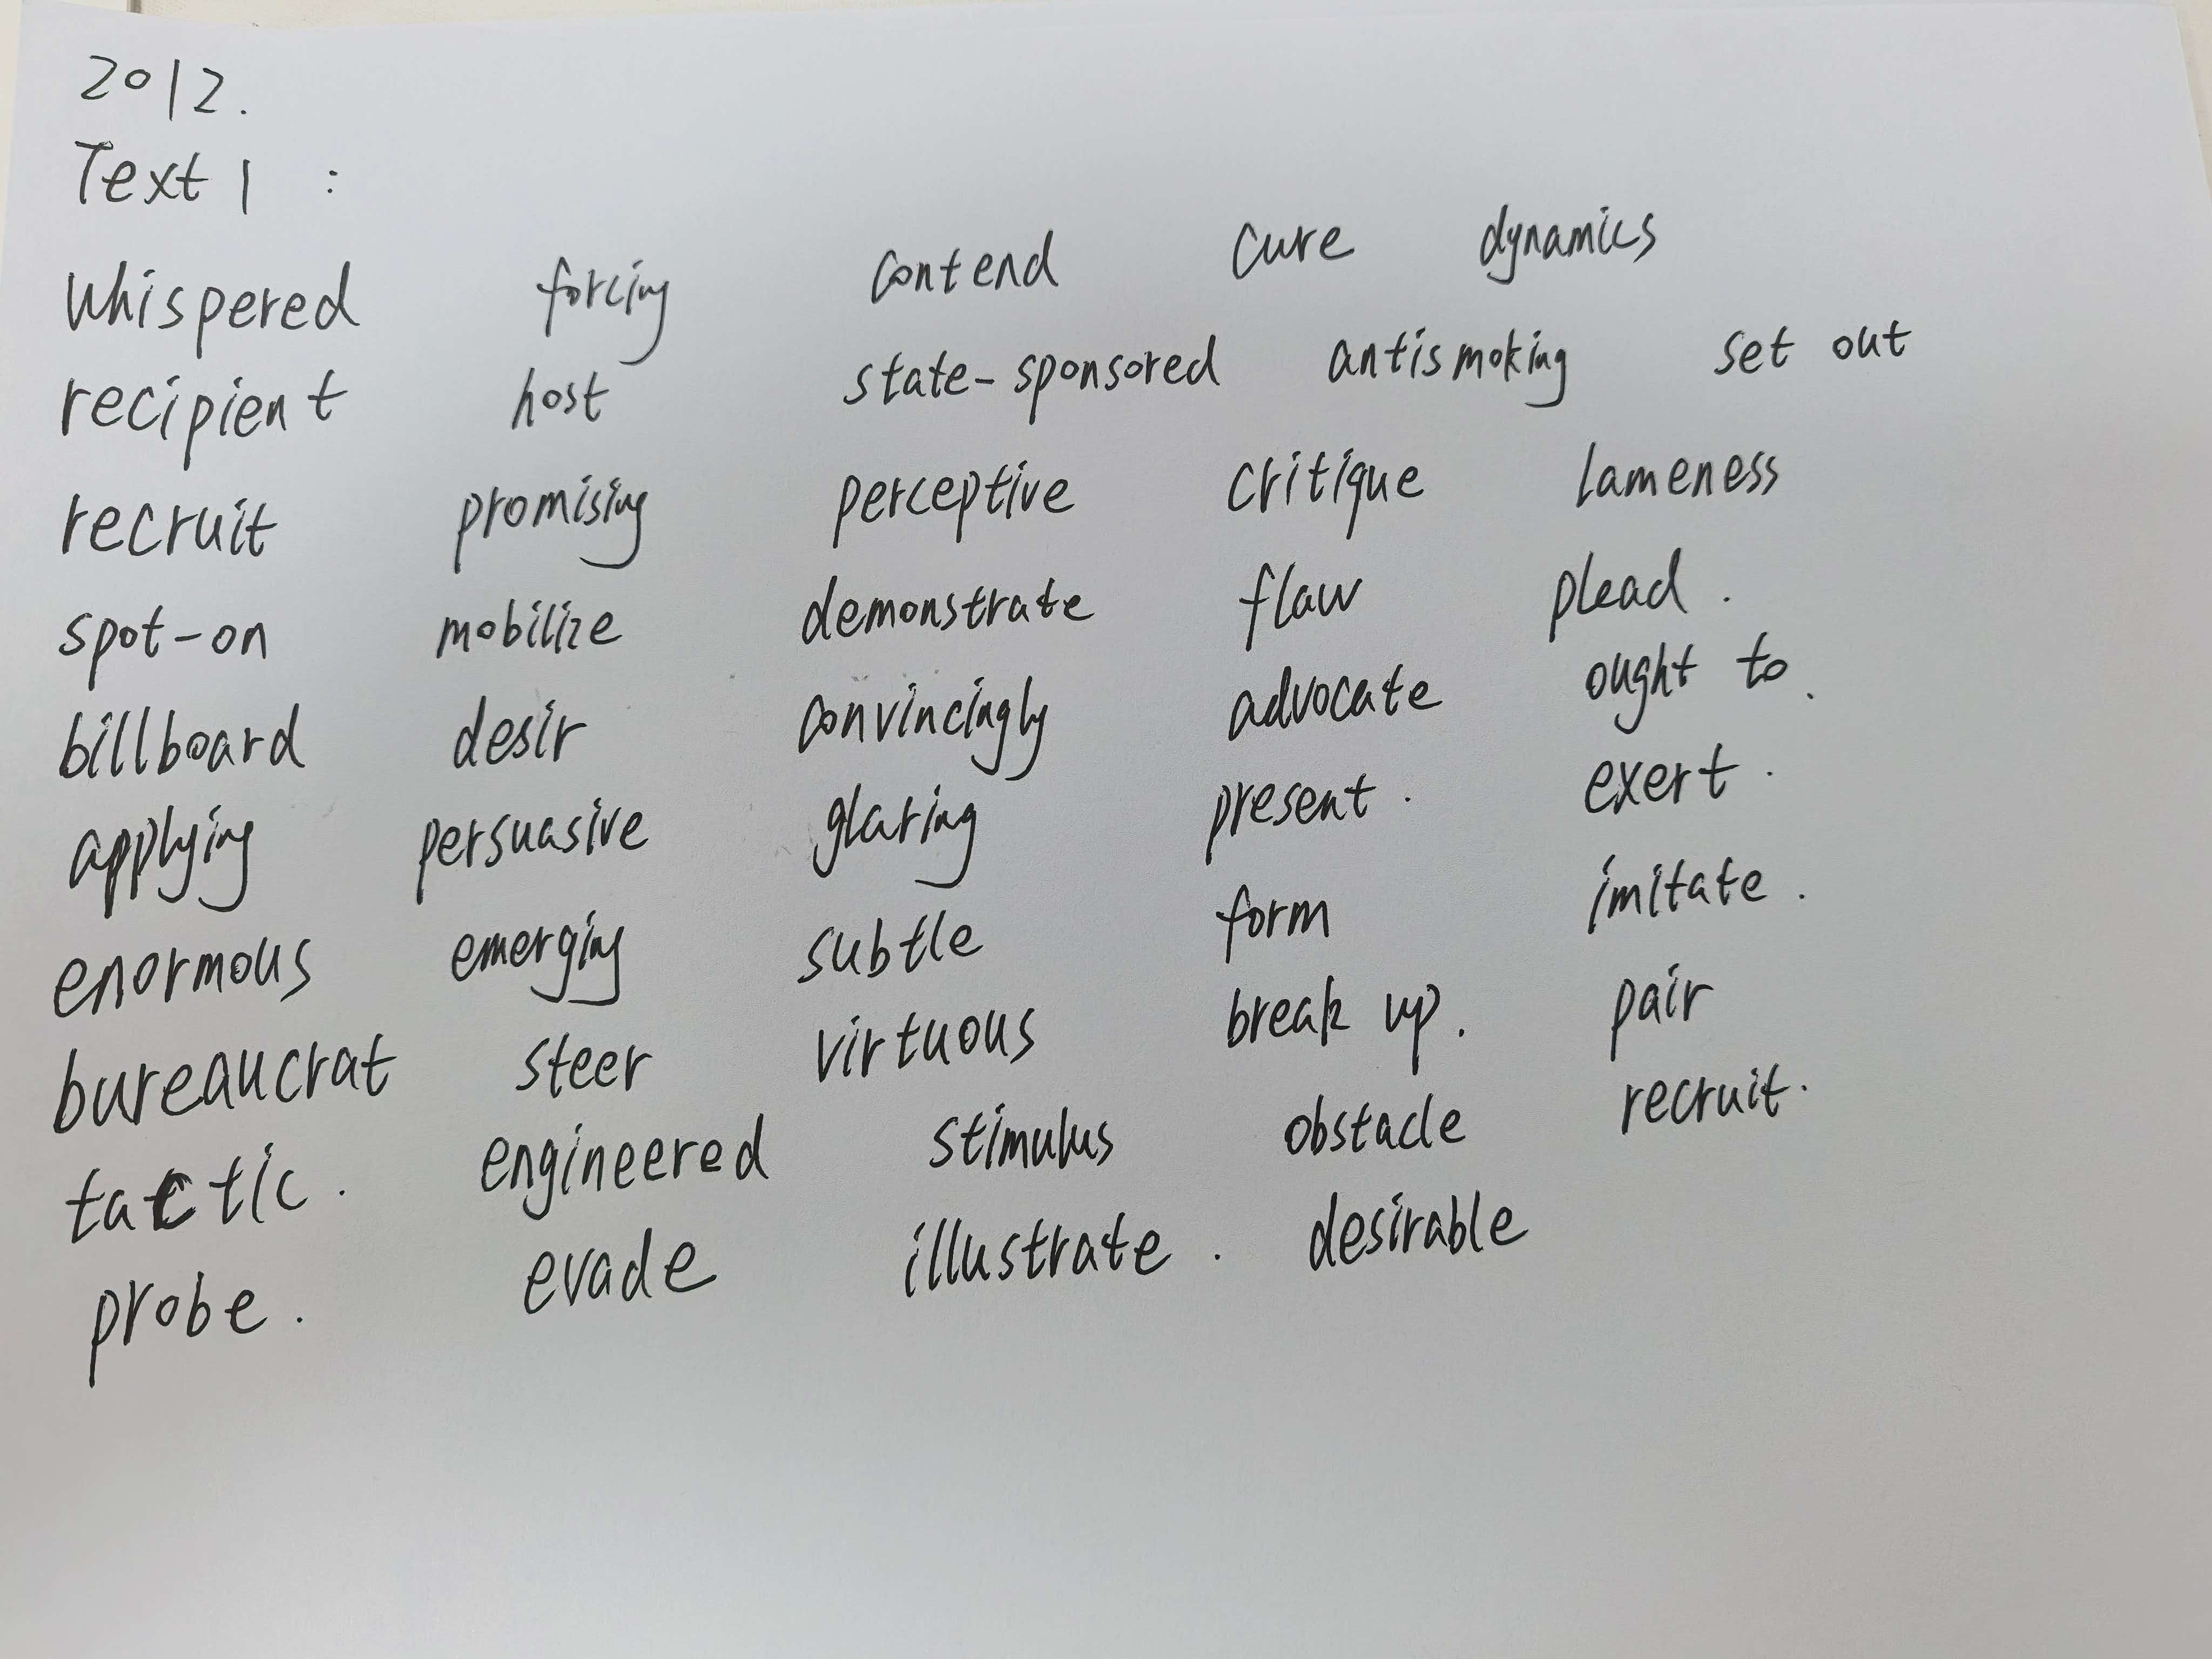 2012.
Text 1 :
whispered forcing contend cure dynamics
recipient host state-sponsored antismoking set out
recruit promising perceptive critique lameness
spot-on mobilize demonstrate flaw plead.
billboard desir convincingly advocate ought to.
applying persuasive glaring present. exert.
enormous emerging subtle form imitate.
bureaucrat steer virtuous break up. pair
tactic. engineered stimulus obstacle recruit.
probe. evade illustrate. desirable